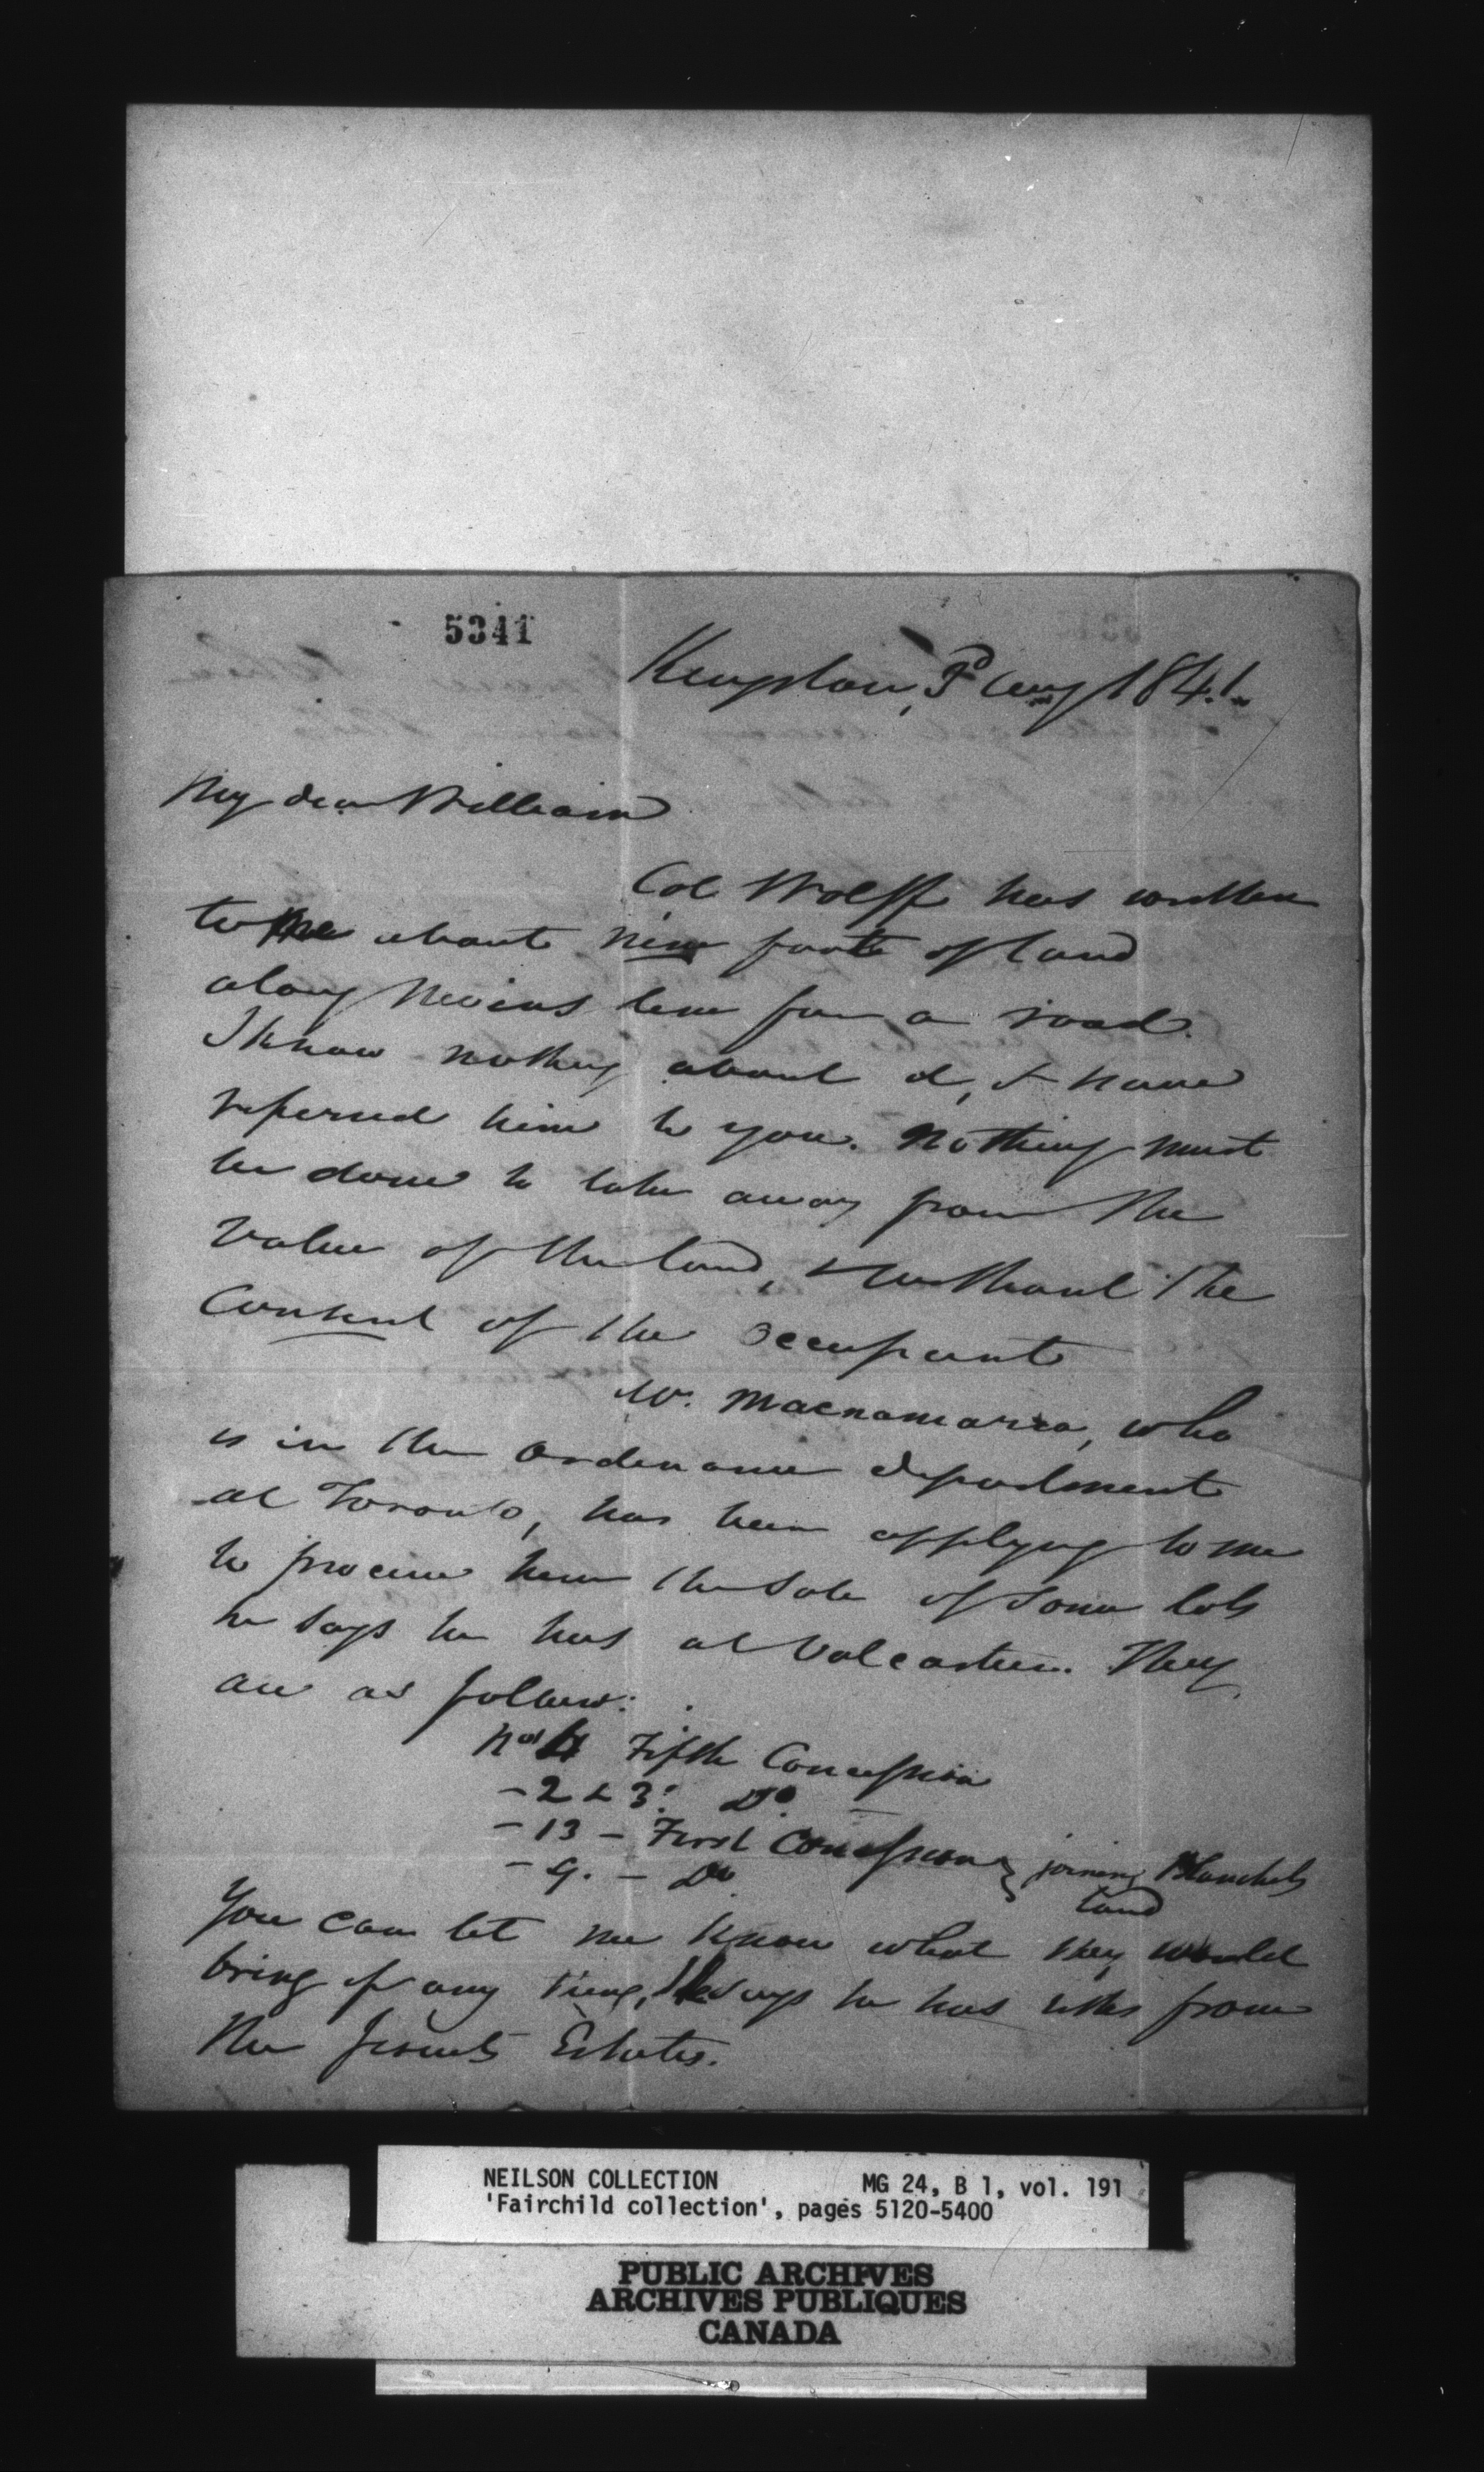 5341
Kingston, 3d Aug 1841.
My dear William
Col Wolff has written
to me about nine foote of land
along Nevins line for a road.
I know nothing about it, & have
referred him to you. Nothing must
be done to take away from the
value of the land, & without the
Consent of the Occupant
Mr. Macnamara, who
is in the Ordenance department
at Toronto, has been applying to me
to procure him the Sale of Some lots
he says he has at Valcartier. They
are as follows:
No 4 Fifth Concession
- 2 & 3: Do.
- 13 - First Concession } joining Blanchets
- 9. - Do land
You can let me know what they would
bring if any thing, He says he has titles from
the Jesuits Estates.
NEILSON COLLECTION MG 24, B 1, vol. 191
'Fairchild collection', pages 5120-5400
PUBLIC ARCHIVES
ARCHIVES PUBLIQUES
CANADA